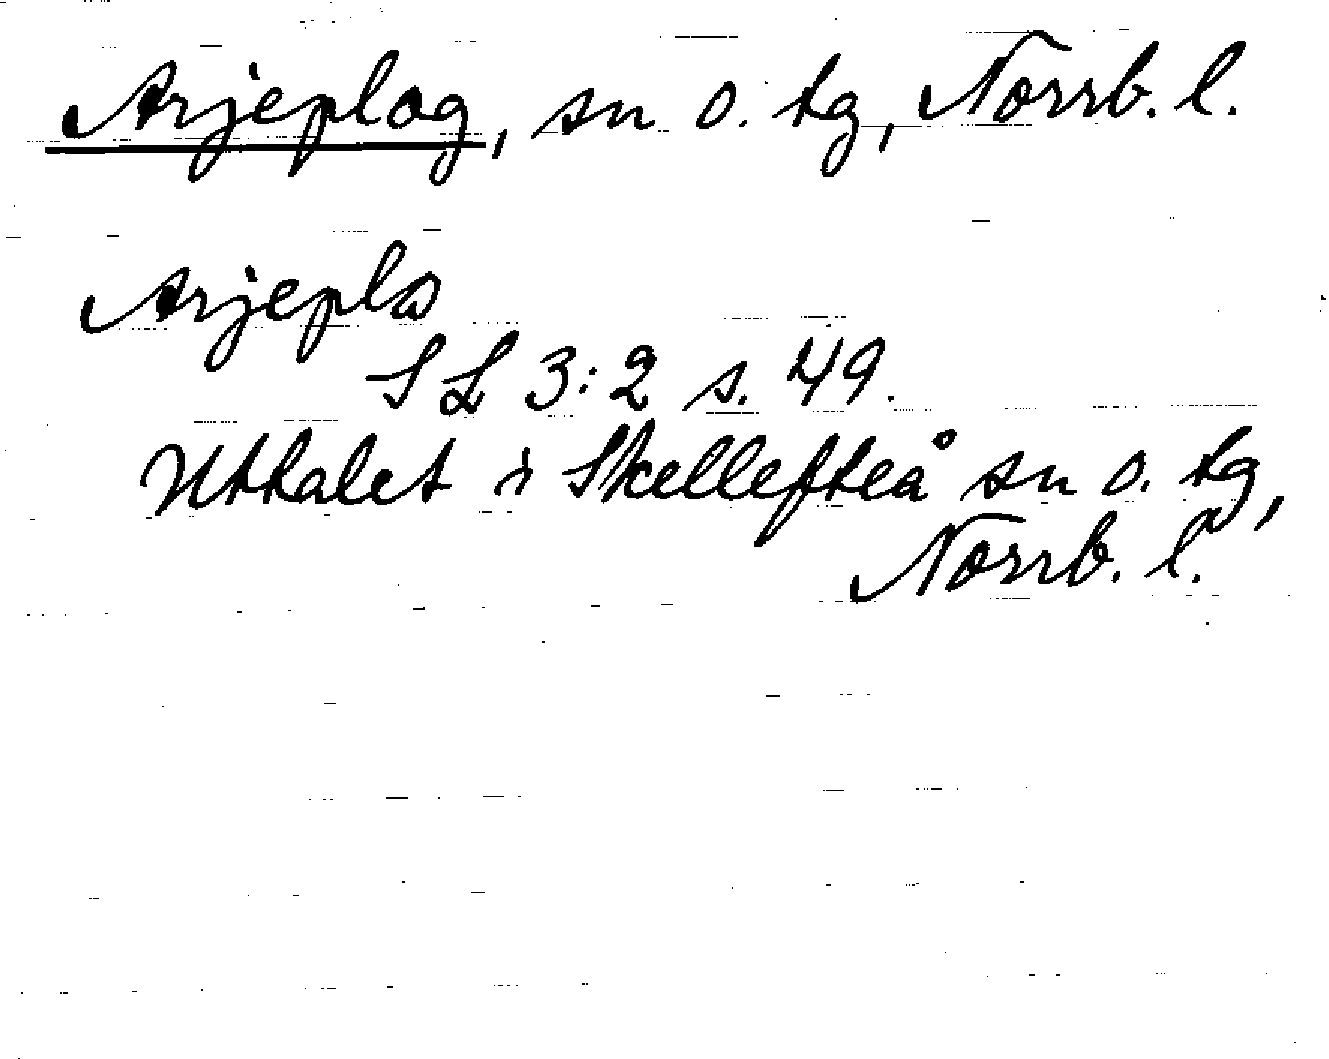 Arjeplog, sn o. tg, Norrb. l.
Arjepla
SL 3:2 s. 49.
Uttalet i Skellefteå sn o. tg,
Norrb. l.